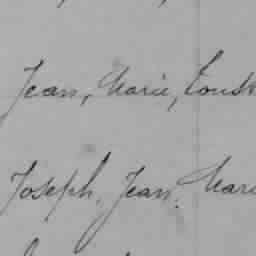 Jean, Marie, Touss
Joseph, Jean, Mari